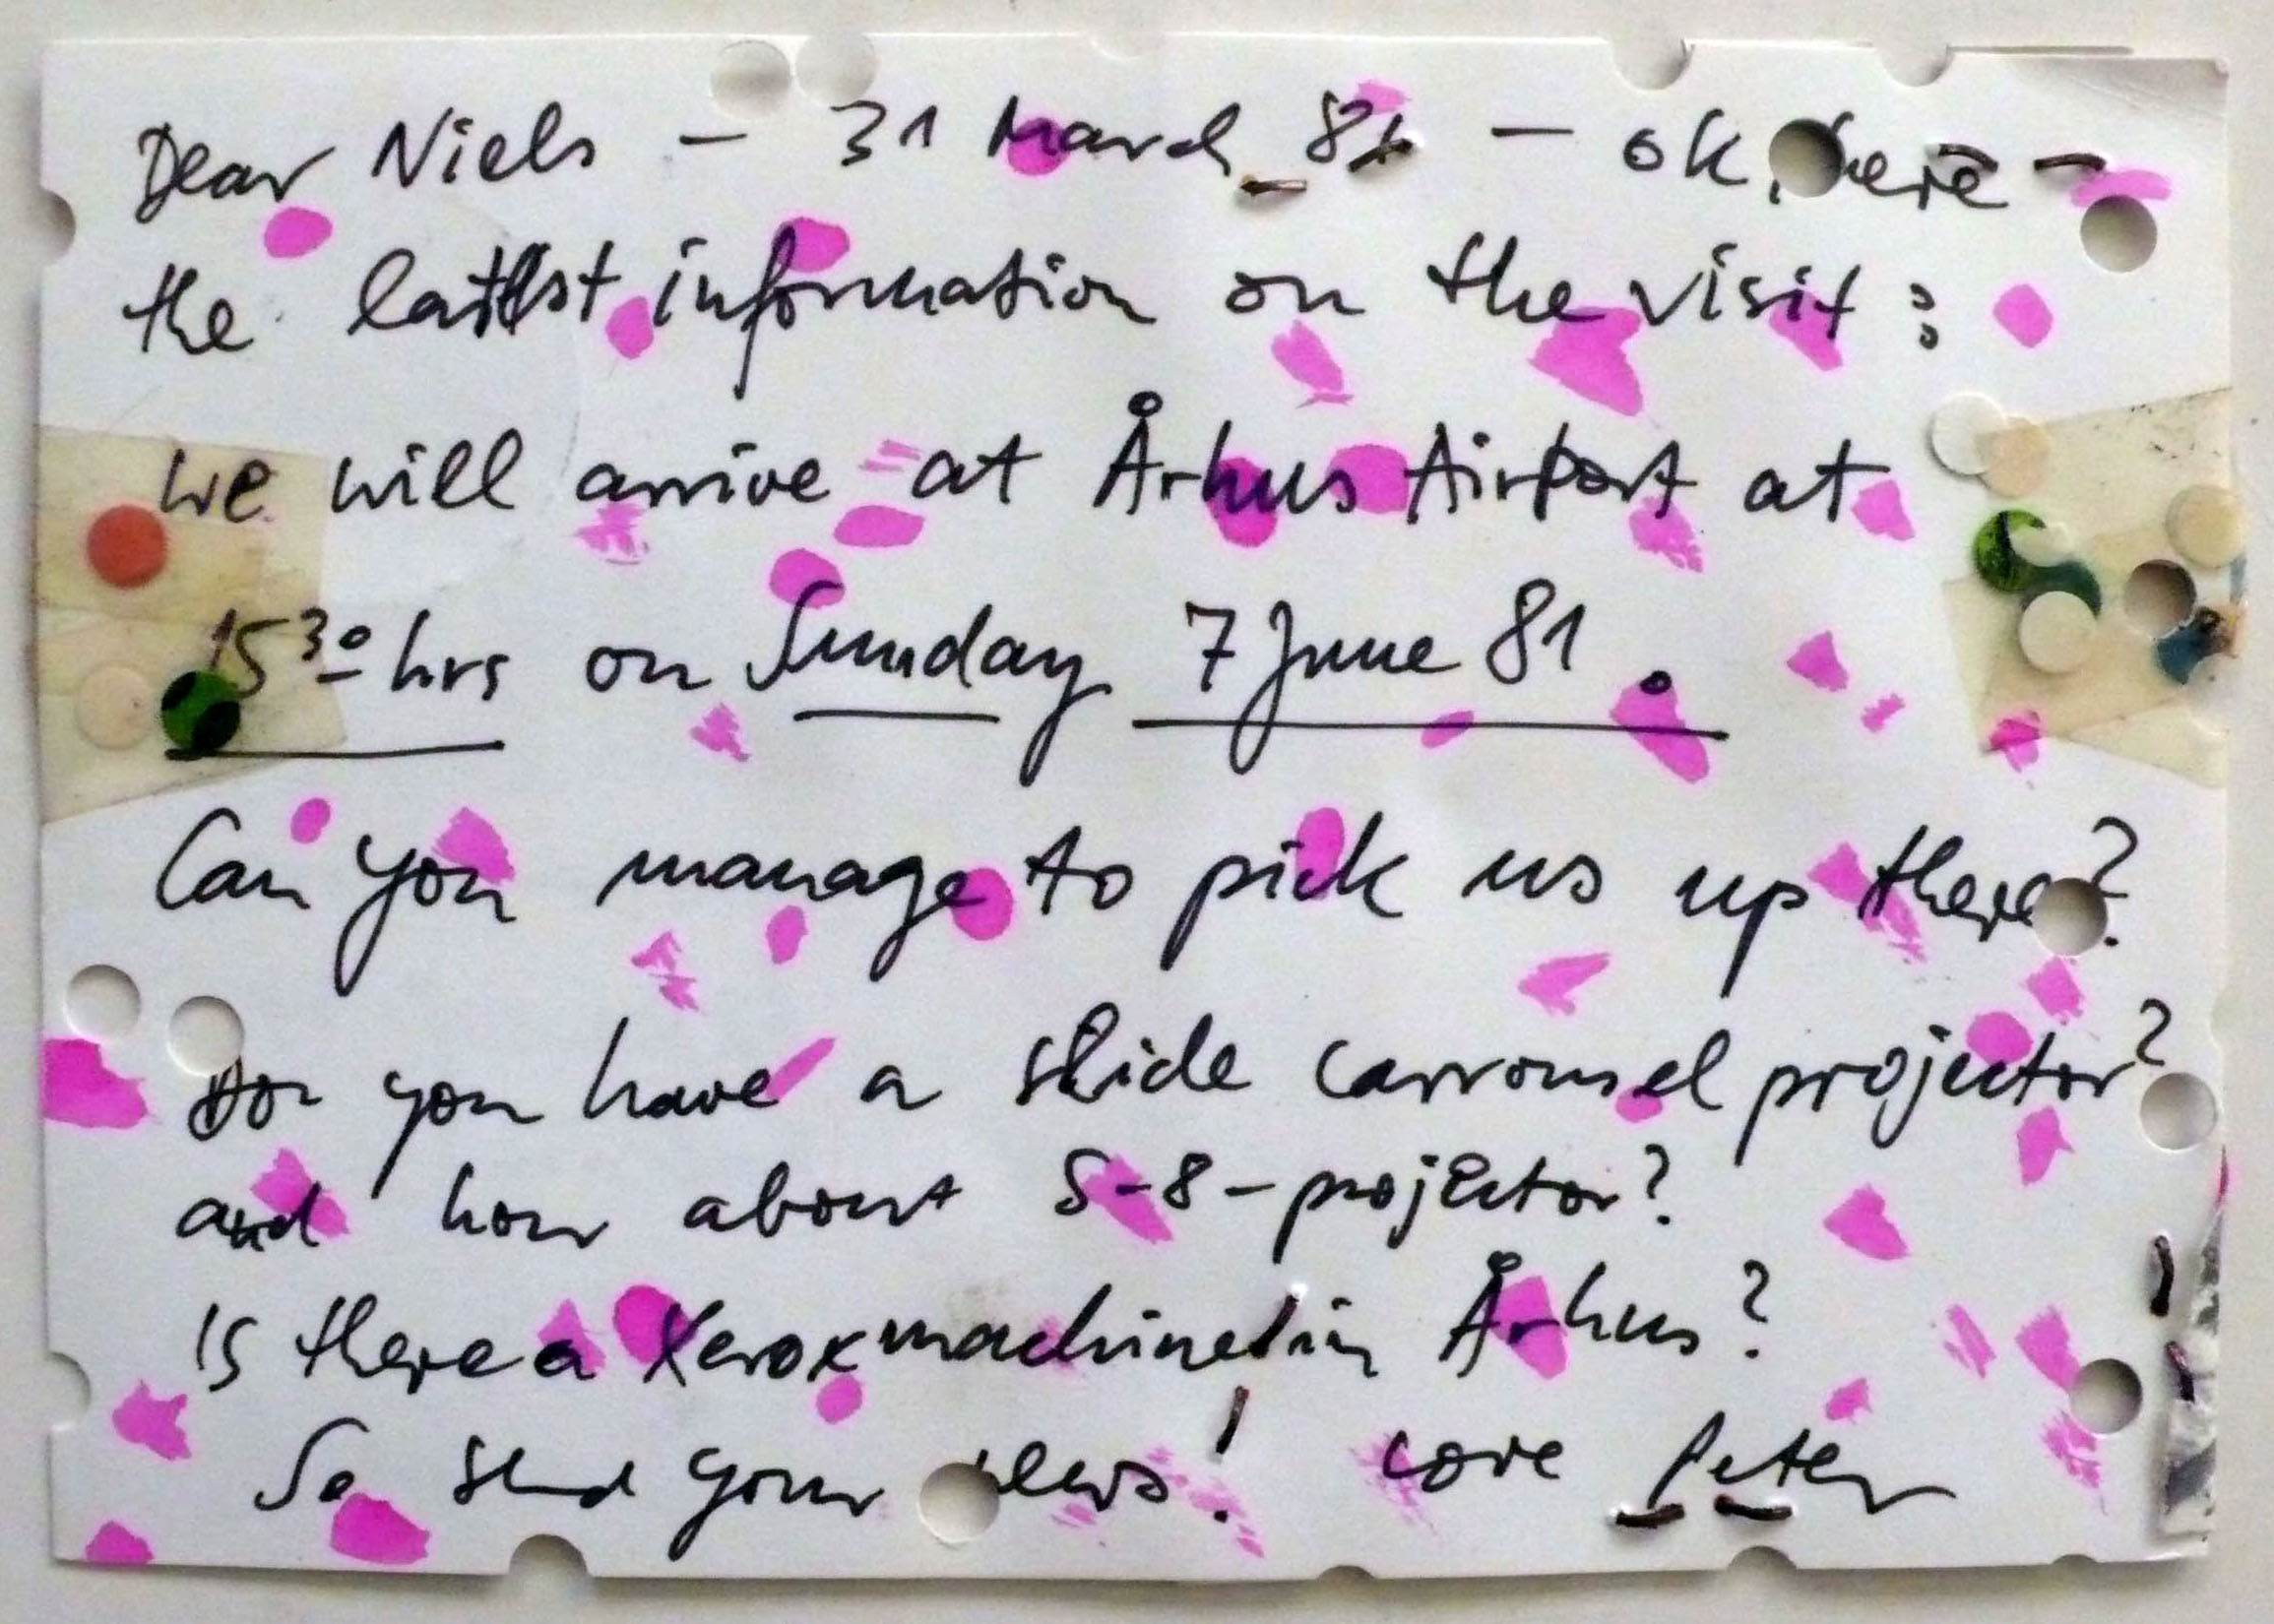 Dear Niels – 31 March 81 – ok, here –
the latest information on the visit:
we will arrive at Århus Airport at
15³⁰ hrs on Sunday 7 June 81.
Can you manage to pick us up there?
Do you have a slide carrousel projector?
and how about S-8-projector?
Is there a Xerox machine in Århus?
So send your news! Love Peter